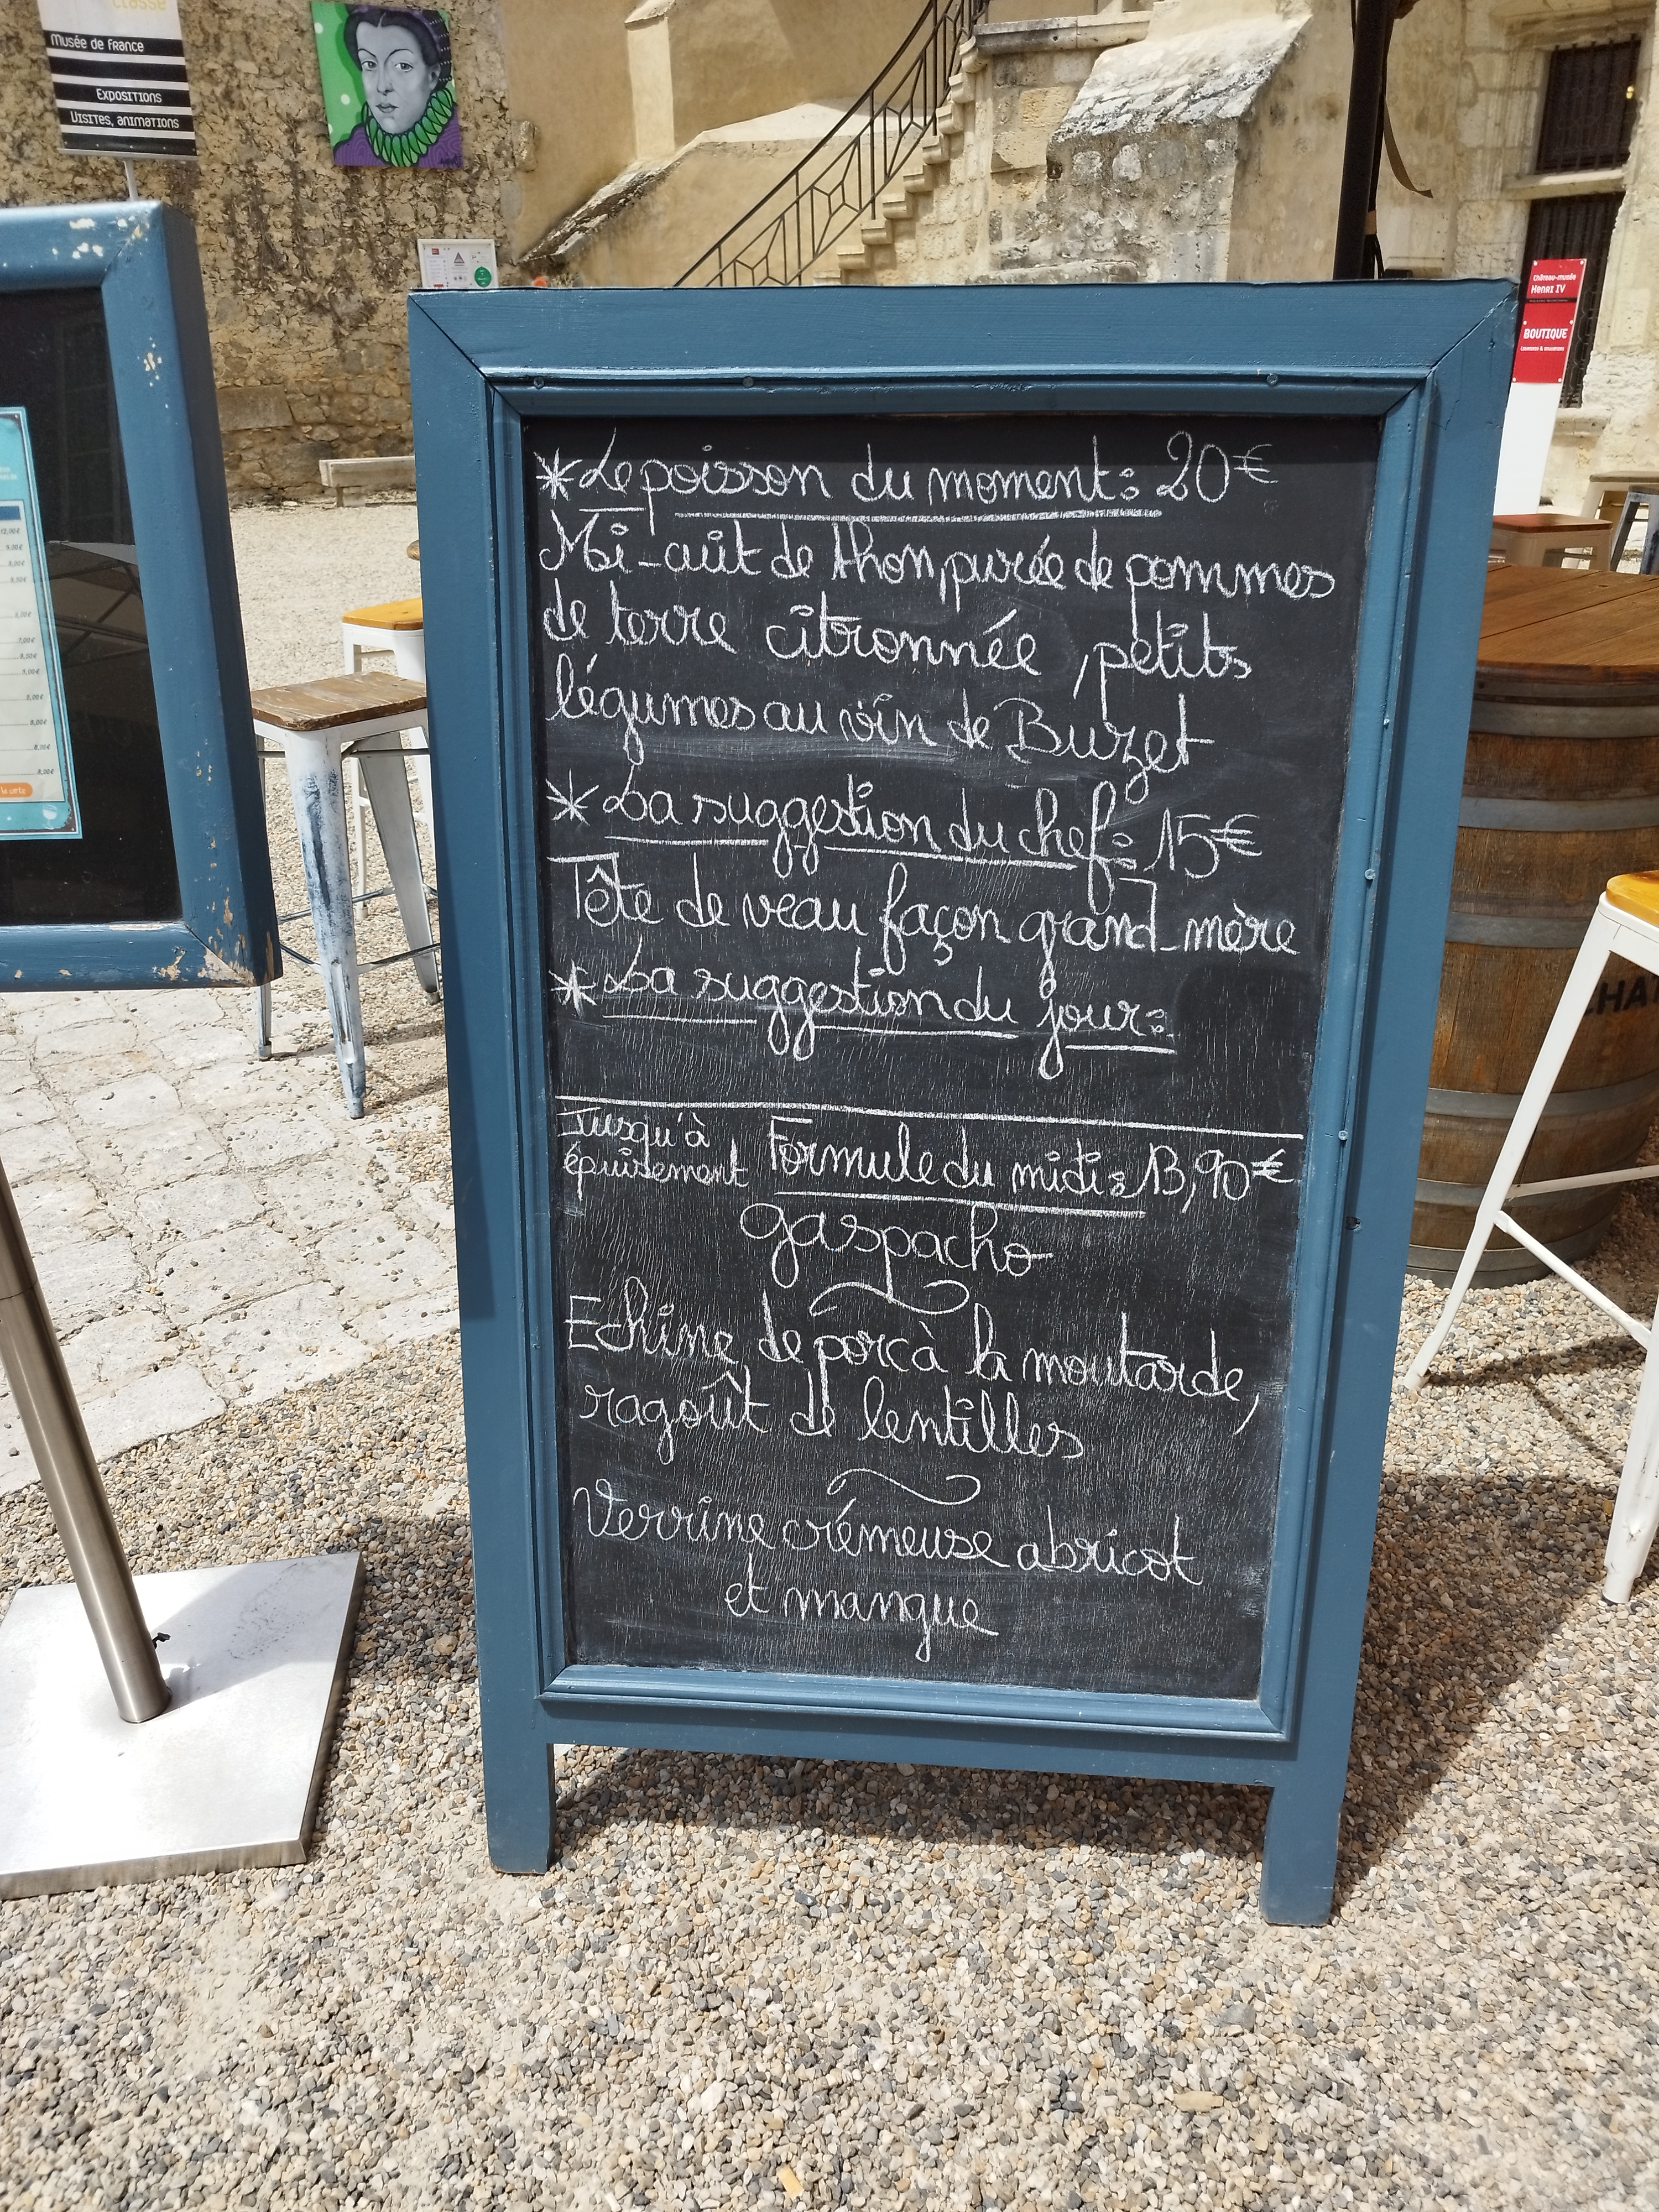 classe
Musée de France
Expositions
Visites, animations
Château-musée
Henri IV
BOUTIQUE
*Le poisson du moment: 20€
Mi-cuit de thon, purée de pommes
de terre citronnée, petits
légumes au vin de Buzet
*La suggestion du chef: 15€
Tête de veau façon grand-mère
*La suggestion du jour:
Jusqu'à
épuisement
Formule du midi: 13,90€
gaspacho
Echine de porc à la moutarde,
ragoût de lentilles
Verrine crémeuse abricot
et mangue
12,00€
8,00€
la carte
CHA